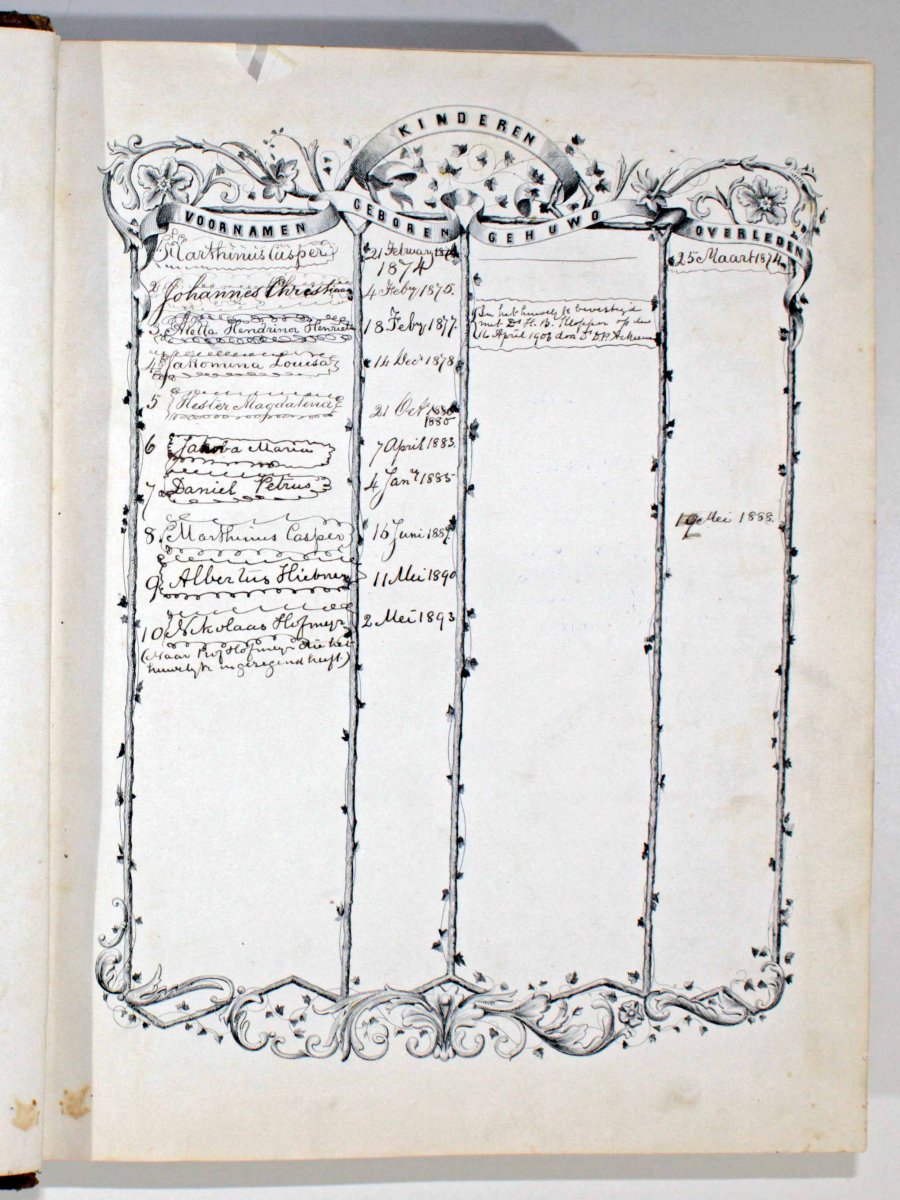 KINDEREN
VOORNAMEN GEBOREN GEHUWD OVERLEDEN
1 Marthinus Casper 21 February 1874 25 Maart 1874
1874
2 Johannes Christiaan 4 Feby 1875.
3 Aletta Hendrina Henrietta 18 Feby 1877. In het huwelijk bevestigd
met Ds H. B. Kloppers op den
16 April 1906 door Ds D.P. Ackerman
4 Jakomina Louisa 14 Decr 1878
5 Hester Magdalena 21 Octr 1880
1880
6 Jakoba Maria 7 April 1883.
7 Daniel Petrus 4 Jany 1885
19 Mei 1888.
8 Marthinus Casper 16 Juni 1887
9 Albertus Hiebner 11 Mei 1890
10 Nikolaas Hofmeyr 2 Mei 1893
(Naar Prof Hofmeyr die het
huwelijk ingezegend heeft.)